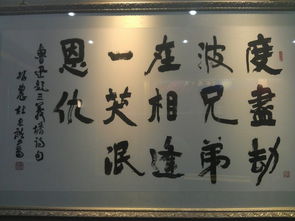 度盡劫
波兄弟
在相逢
一笑泯
恩仇
魯迅題三義塔詩句